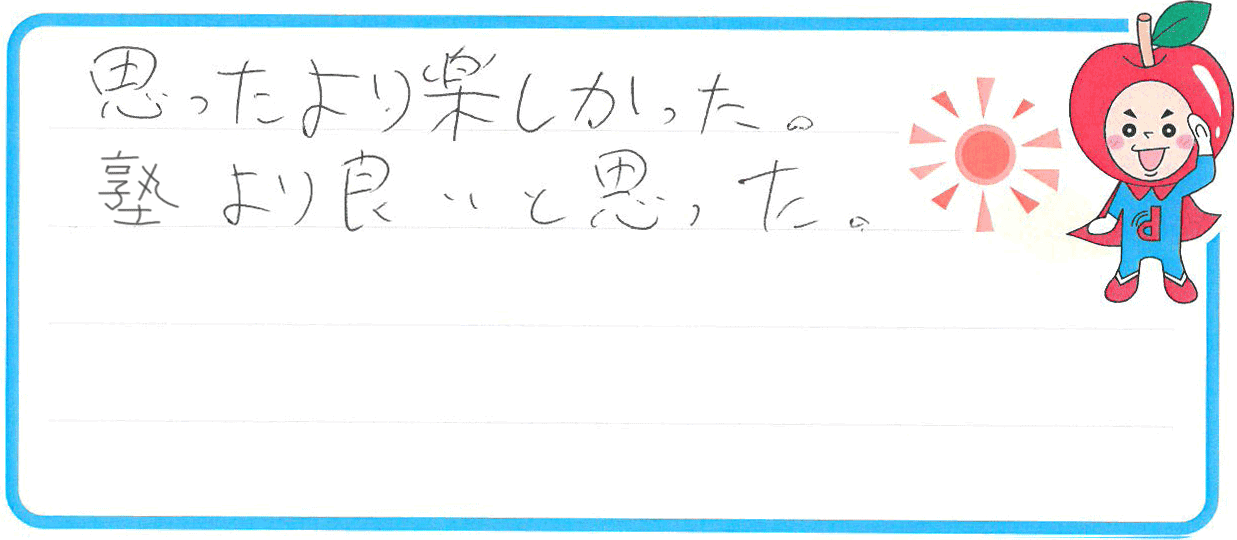 思ったより楽しかった。
塾より良いと思った。
d